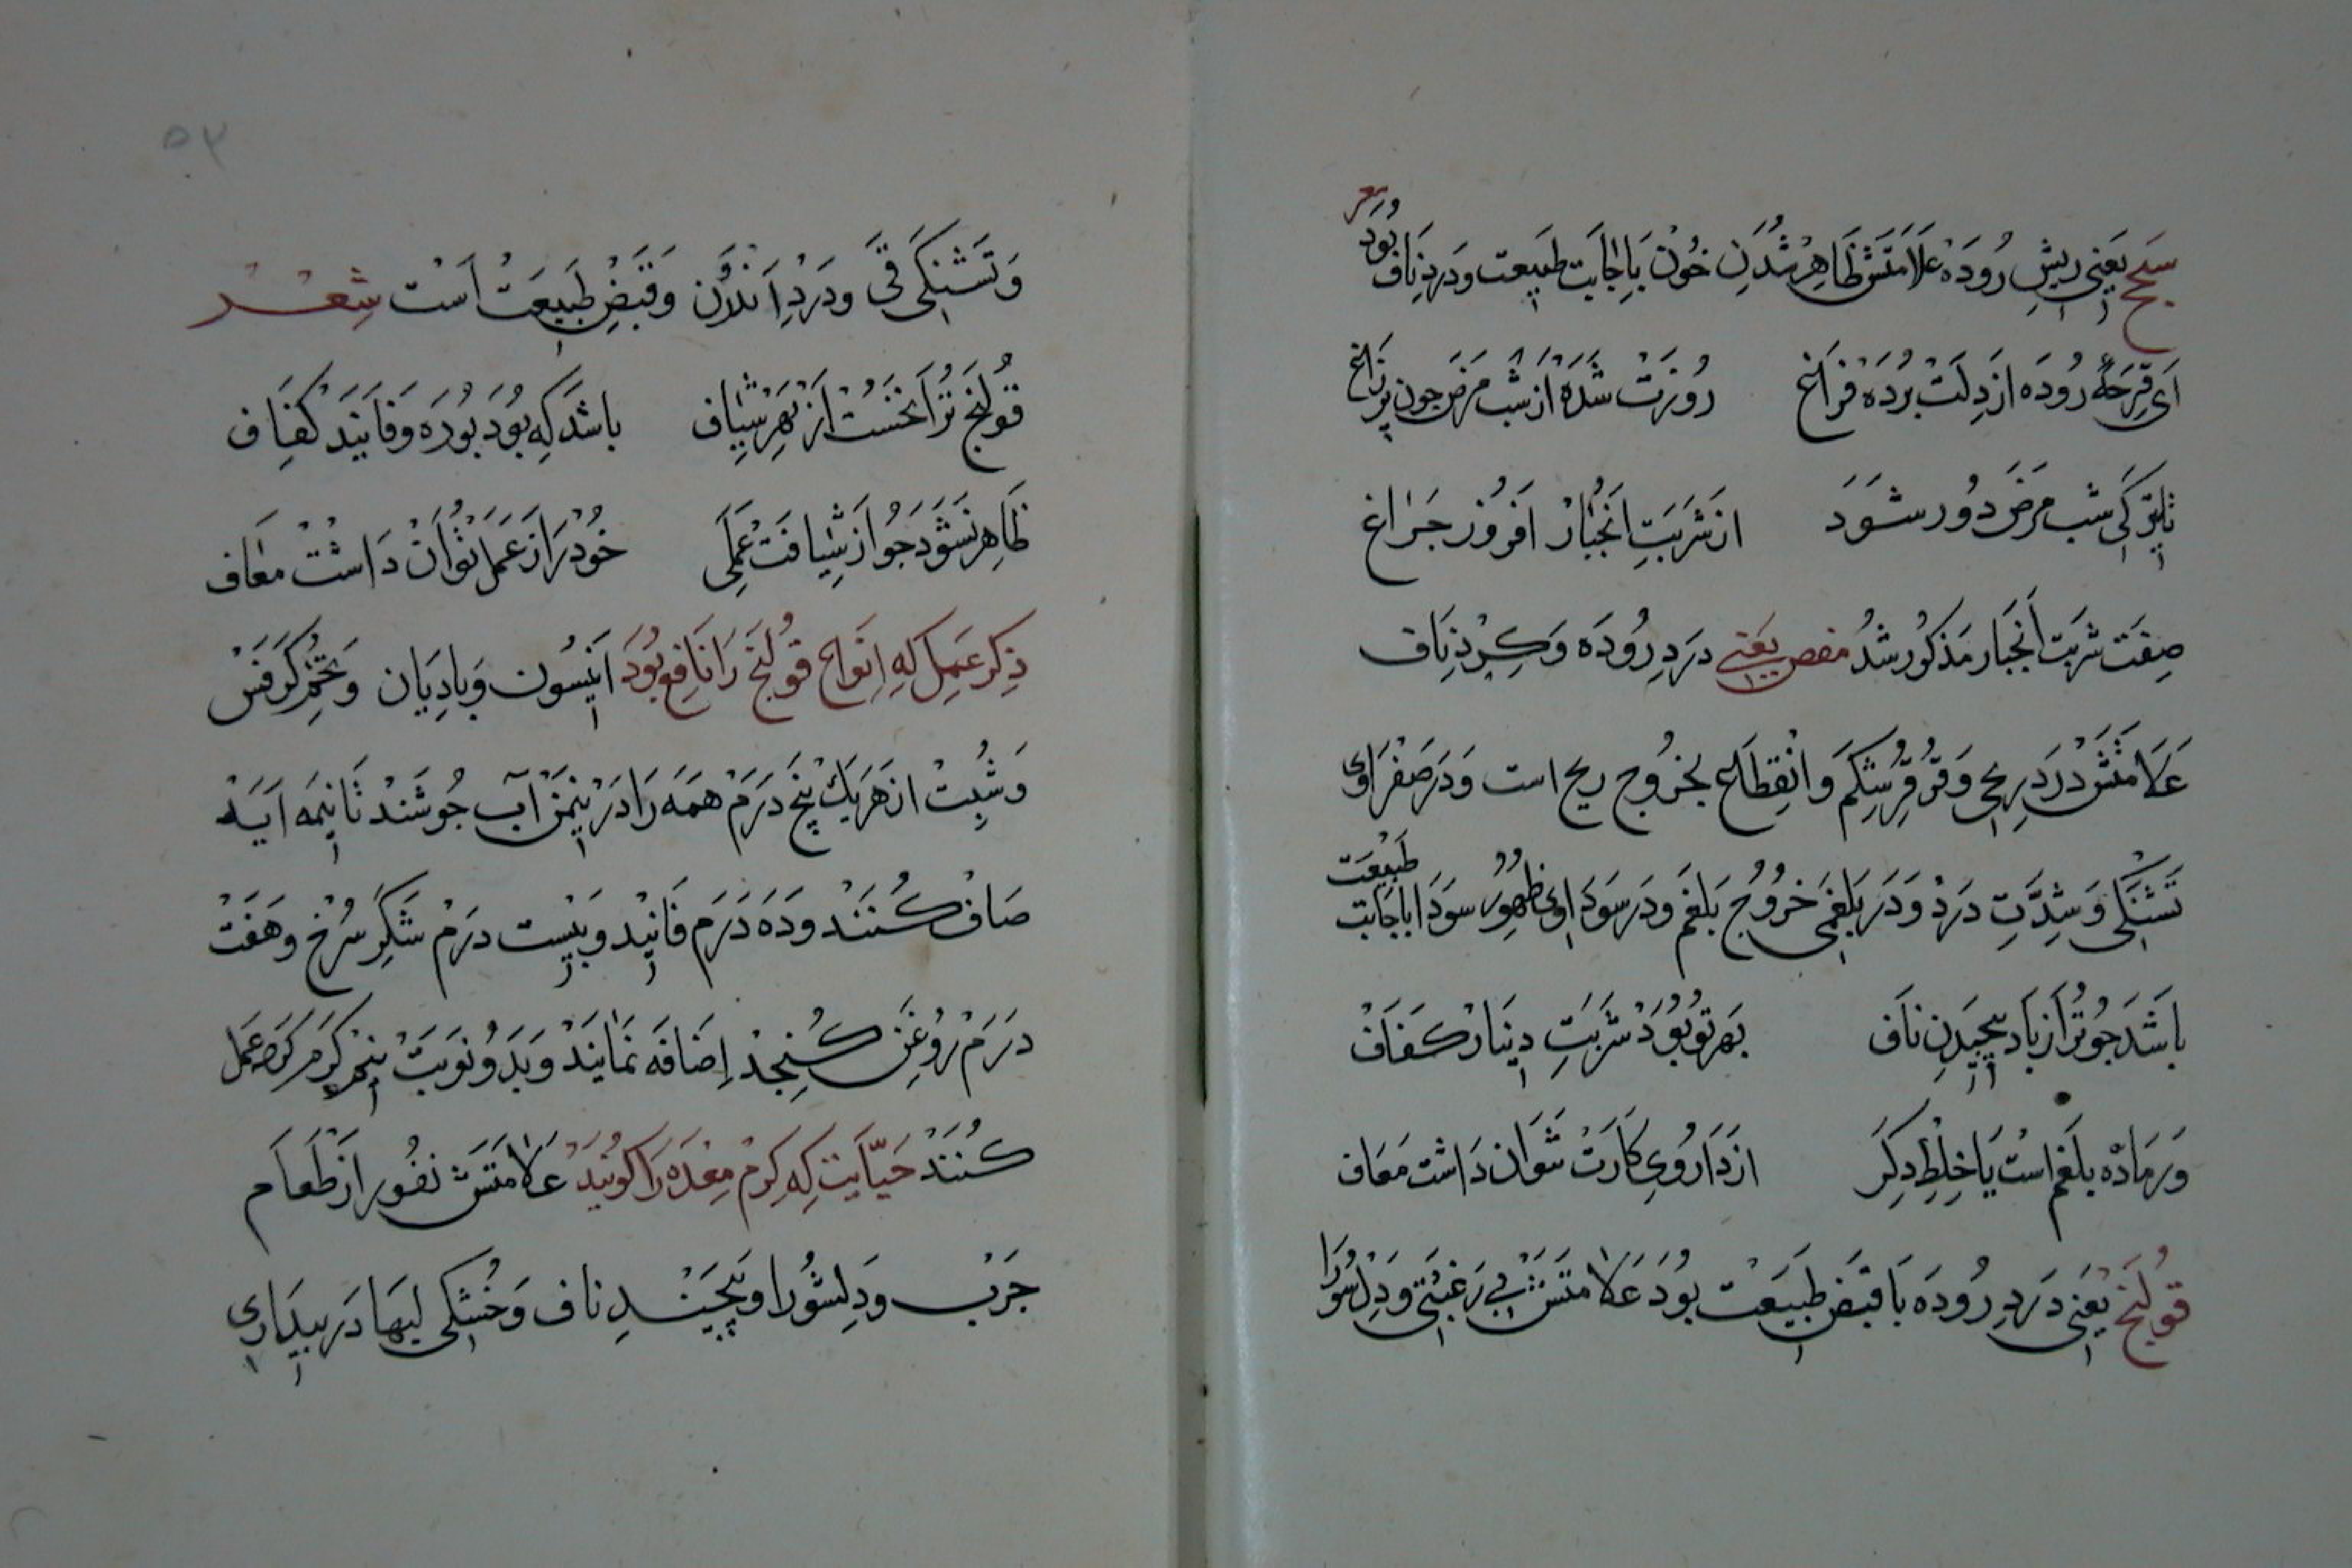 سحج یعنی ریش روده علامتش ظاهر شدن خون با اجابت طبیعت و درد ناف بود شعر
ای قرحهٔ روده از دلت برده فراغ روزت شده از شب مرض چون پر زاغ
تا تیرکی شب مرض دور شود از شربت انجبار افروز چراغ
صفت شربت انجبار مذکور شد مغص یعنی درد روده و کرد ناف
علامتش در ریحی و قرقر شکم و انقطاع بخروج ریح است و در صفراوی
تشنکی و شدت درد و در بلغمی خروج بلغم و در سوداوی ظهور سودا باجابت طبیعت
باشد چو ترا زباد پیچیدن ناف بهر تو بود شربت دینار کفاف
ور ماده بلغم است یا خلط دکر از داروی کارت نتوان داشت معاف
قولنج یعنی درد روده با قبض طبیعت بود علامتش بی رغبتی و دل شورا
۵۳
و تشنکی قی و درد اندرون و قبض طبیعت است شعر
قولنج ترا نخست از بهر شیاف باشد که بود بوره و فانید کفاف
ظاهر نشود چو از شیافت عملی خود را ز عمل نتوان داشت معاف
ذکر عمل که انواع قولنج را نافع بود انیسون و بادیان و تخم کرفس
و شبت از هر یک پنج درم همه را در نیمن آب جوشند تا نیمه اید
صاف کنند و ده درم فانید و بیست درم شکر سرخ و هفت
درم روغن کنجد اضافه نمایند و بدو نوبت نیم کرم کرده عمل
کنند حیّات که کرم معده را کویند علامتش نفور از طعام
چرب و دلشورا و پیچیدن ناف و خشکی لبها در بیداری